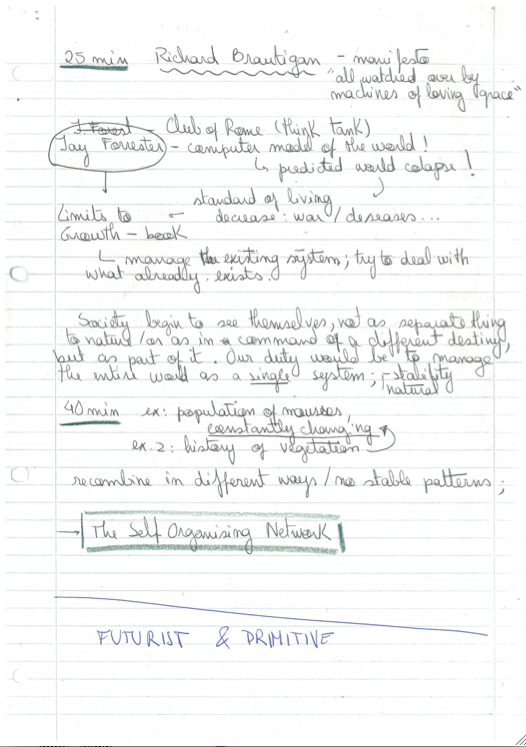 25 min Richard Brautigan - manifesto
"all watched over by
machines of loving grace"
J. Forest Club of Rome (think tank)
Jay Forrester - computer model of the world!
↳ predicted world colapse!
standard of living
Limits to ← decrease: war/deseases...
Growth - book
↳ manage the existing system; try to deal with
what already exists.
Society begin to see themselves, not as separate thing
to nature/or as in a command of a different destiny,
but as part of it. Our duty would be to manage
the entire world as a single system; - stability
natural
40 min ex: population of mousses,
constantly changing
ex. 2: history of vegetation
recombine in different ways/no stable patterns;
→ The Self Organising Network
FUTURIST & PRIMITIVE